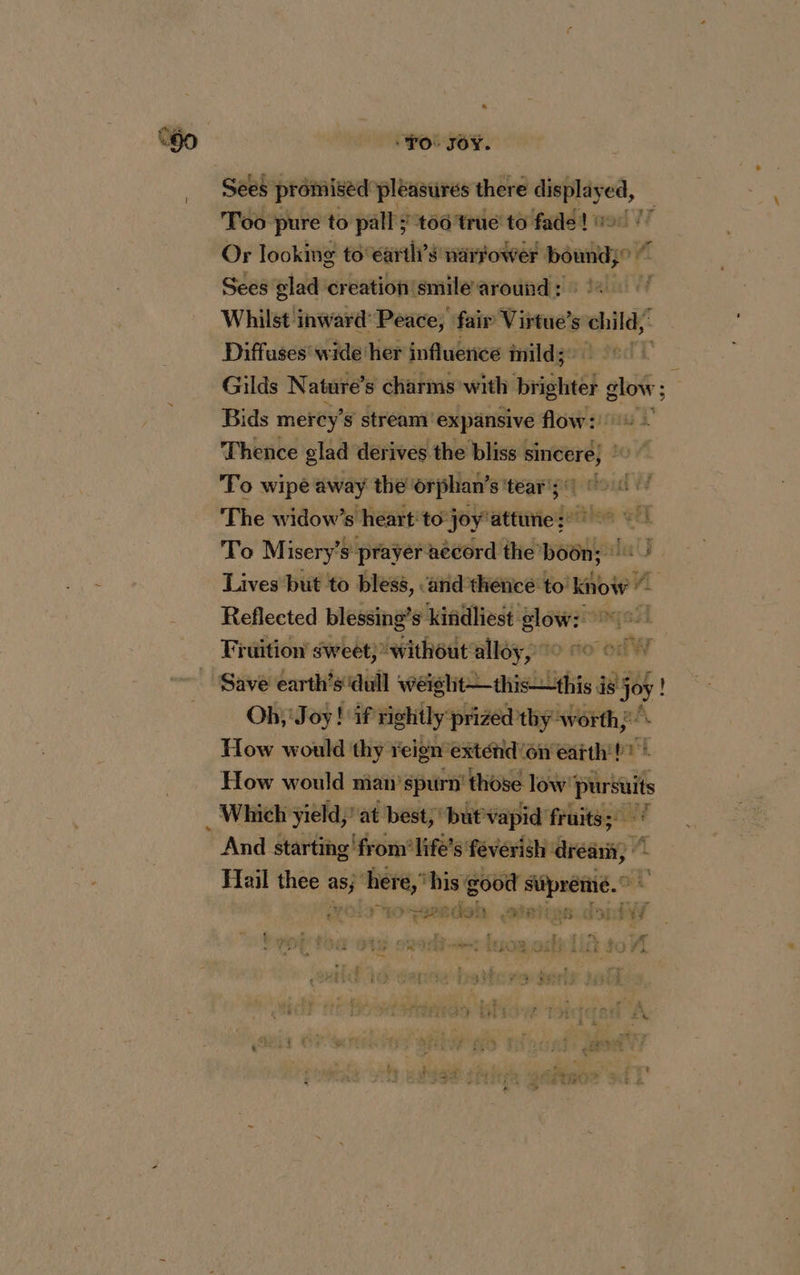 90
TO JOY.
Sees promised pleasures there displayed,
Too pure to pall; too true to fade!
Or looking to earth's narrower bound,
Sees glad creation smile around:
Whilst inward Peace, fair Virtue's child,
Diffuses wide her influence mild;
Gilds Nature's charms with brighter glow;
Bids mercy's stream expansive flow:
Thence glad derives the bliss sincere,
To wipe away the orphan's tear;
The widow's heart to joy attune;
To Misery's prayer accord the boon;
Lives but to bless, and thence to know
Reflected blessing's kindliest glow:
Fruition sweet, without alloy,
Save earth's dull weight—this—this is joy!
Oh, Joy! if rightly prized thy worth,
How would thy reign extend on earth!
How would man spurn those low pursuits
Which yield, at best, but vapid fruits;
And starting from life's feverish dream,
Hail thee as, here, his good supreme.